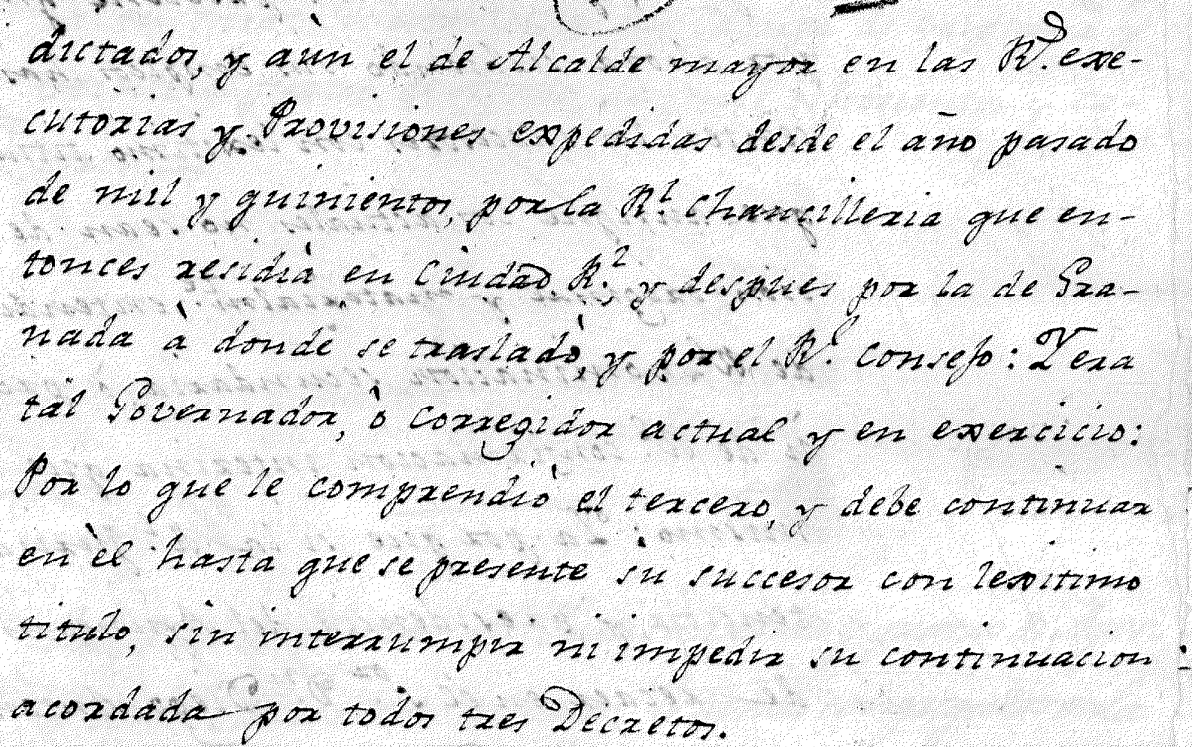 dictados, y aùn el de Alcalde mayor en las R.ˢ exe-
cutorias y Provisiones expedidas desde el año pasado
de mil y quinientos, por la R.ˡ Chancilleria que en-
tonces residia en Ciudad R.ˡ, y despues por la de Gra-
nada à donde se trasladò, y por el R.ˡ Consejo: Y era
tal Governador, ò Corregidor actual y en exercicio:
Por lo que le comprendiò el tercero, y debe continuar
en èl hasta que se presente su succesor con lexitimo
titulo, sin interrumpir ni impedir su continuacion
acordada por todos tres Decretos.